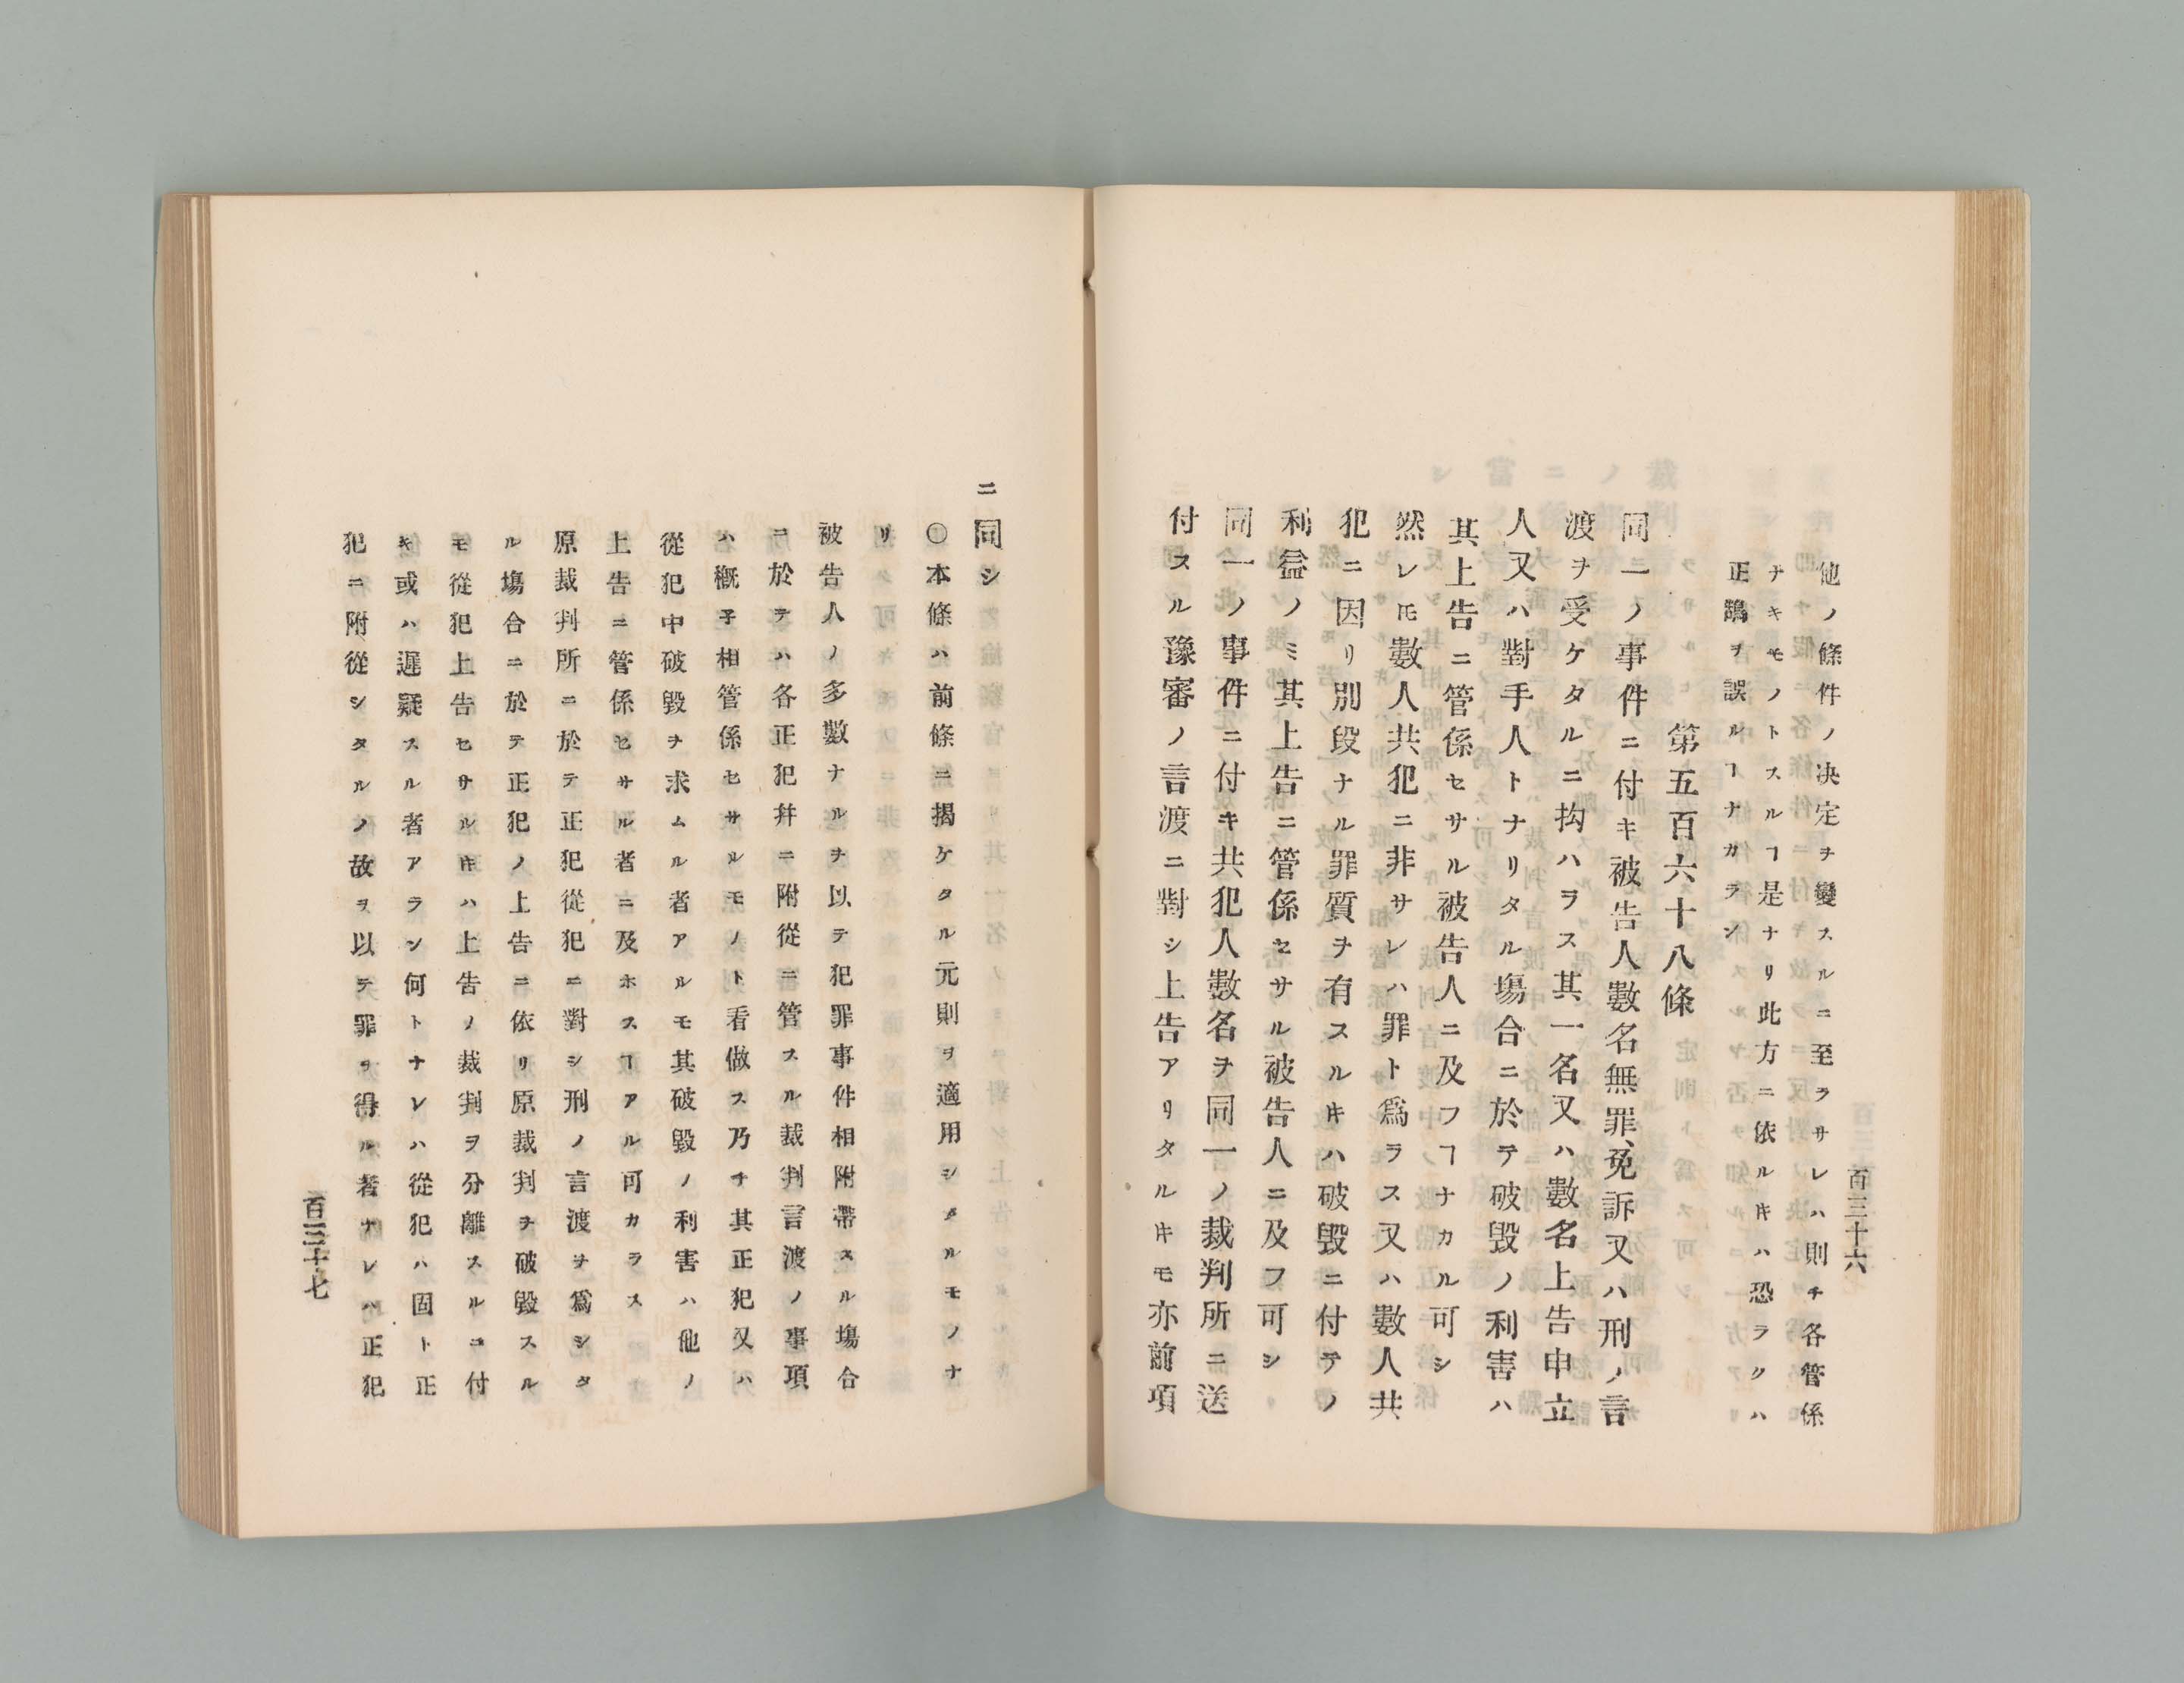 他ノ條件ノ决定ヲ變スルニ至ラサレハ則チ各管係
ナキモノトスルヿ是ナリ此方ニ依ルキハ恐ラクハ
正鵠ヲ誤ルヿナカラン
第五百六十八條
同一ノ事件ニ付キ被告人數名無罪、免訴又ハ刑ノ言
渡ヲ受ケタルニ拘ハラス其一名又ハ數名上告申立
人又ハ對手人トナリタル塲合ニ於テ破毀ノ利害ハ
其上告ニ管係セサル被告人ニ及フヿナカル可シ
然レ𪜈數人共犯ニ非サレハ罪ト爲ラス又ハ數人共
犯ニ因リ別段ナル罪質ヲ有スル𬼀ハ破毀ニ付テノ
利益ノミ其上告ニ管係セサル被告人ニ及フ可シ
同一ノ事件ニ付キ共犯人數名ヲ同一ノ裁判所ニ送
付スル豫審ノ言渡ニ對シ上告アリタル𬼀モ亦前項
百三十六
ニ同シ
〇本條ハ前條ニ揭ケタル元則ヲ適用シタルモノナ
リ
被告人ノ多數ナルヲ以テ犯罪事件相附帶スル塲合
ニ於テハ各正犯幷ニ附從ニ管スル裁判言渡ノ事項
ハ槪子相管係セサルモノト看做ス乃チ其正犯又ハ
從犯中破毀ヲ求ムル者アルモ其破毀ノ利害ハ他ノ
上告ニ管係セサル者ニ及ホスヿアル可カラス
原裁判所ニ於テ正犯從犯ニ對シ刑ノ言渡ヲ爲シタ
ル塲合ニ於テ正犯ノ上告ニ依リ原裁判ヲ破毀スル
モ從犯上告セサル𬼀ハ上告ノ裁判ヲ分離スルニ付
キ或ハ遲疑スル者アラン何トナレハ從犯ハ固ト正
犯ニ附從シタルノ故ヲ以テ罪ヲ得ル者ナレハ正犯
百三十七